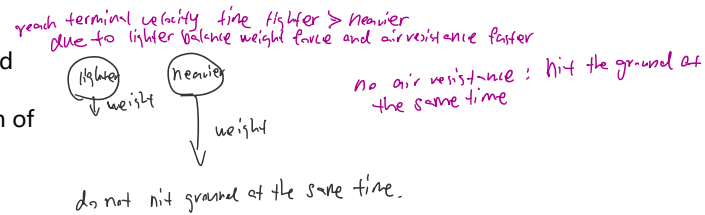 reach terminal velocity time lighter > heavier
due to lighter balance weight force and air resistance faster
d
lighter
heavier
no air resistance : hit the ground at
the same time
weight
n of
weight
do not hit ground at the same time.